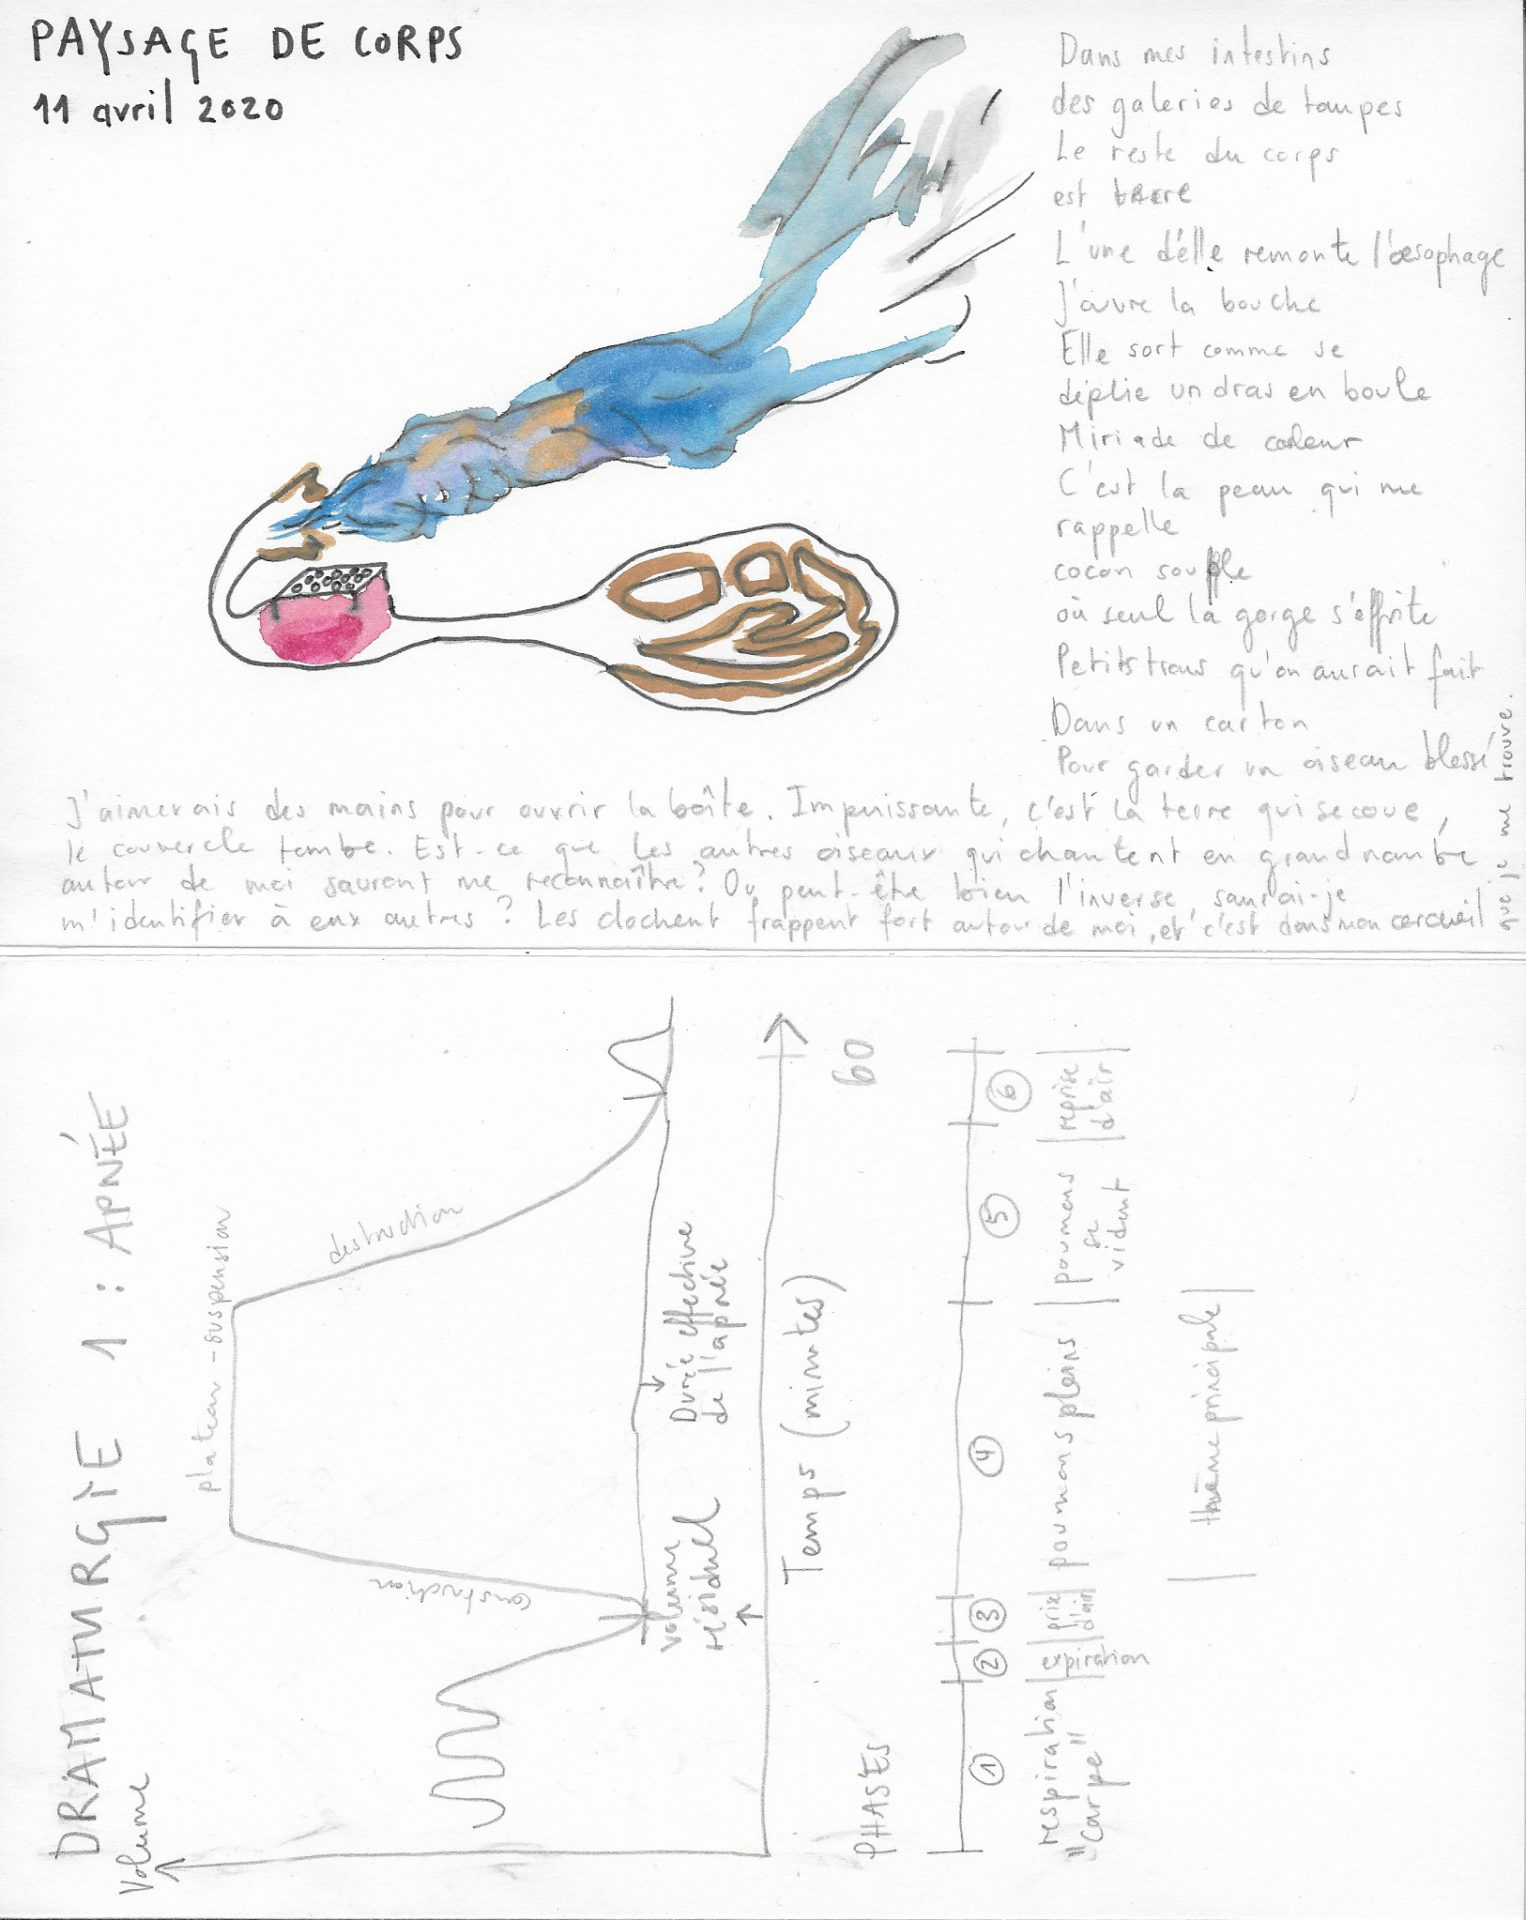 PAYSAGE DE CORPS
11 avril 2020
Dans mes intestins
des galeries de taupes
Le reste du corps
est terre
L'une d'elle remonte l'œsophage
J'ouvre la bouche
Elle sort comme se
déplie un dras en boule
Miriade de couleur
C'est la peau qui me
rappelle
cocon souple
où seul la gorge s'effrite
Petits trous qu'on aurait fait
Dans un carton
Pour garder un oiseau blessé
J'aimerais des mains pour ouvrir la boîte. Impuissante, c'est la terre qui secoue,
le couvercle tombe. Est-ce que les autres oiseaux qui chantent en grand nombre
autour de moi sauront me reconnaître? Ou peut-être bien l'inverse, saurai-je
m'identifier à eux autres? Les clochent frappent fort autour de moi, et c'est dans mon cercueil
que je me trouve.
DRAMATURGIE 1 : APNÉE
Volume
plateau - suspension
destruction
construction
volume
résiduel
Durée effective
de l'apnée
Temps (minutes)
60
PHASES
1 2 3 4 5 6
respiration
"carpe"
expiration
prise
d'air
poumons pleins
poumons
se
vident
reprise
d'air
thème principale